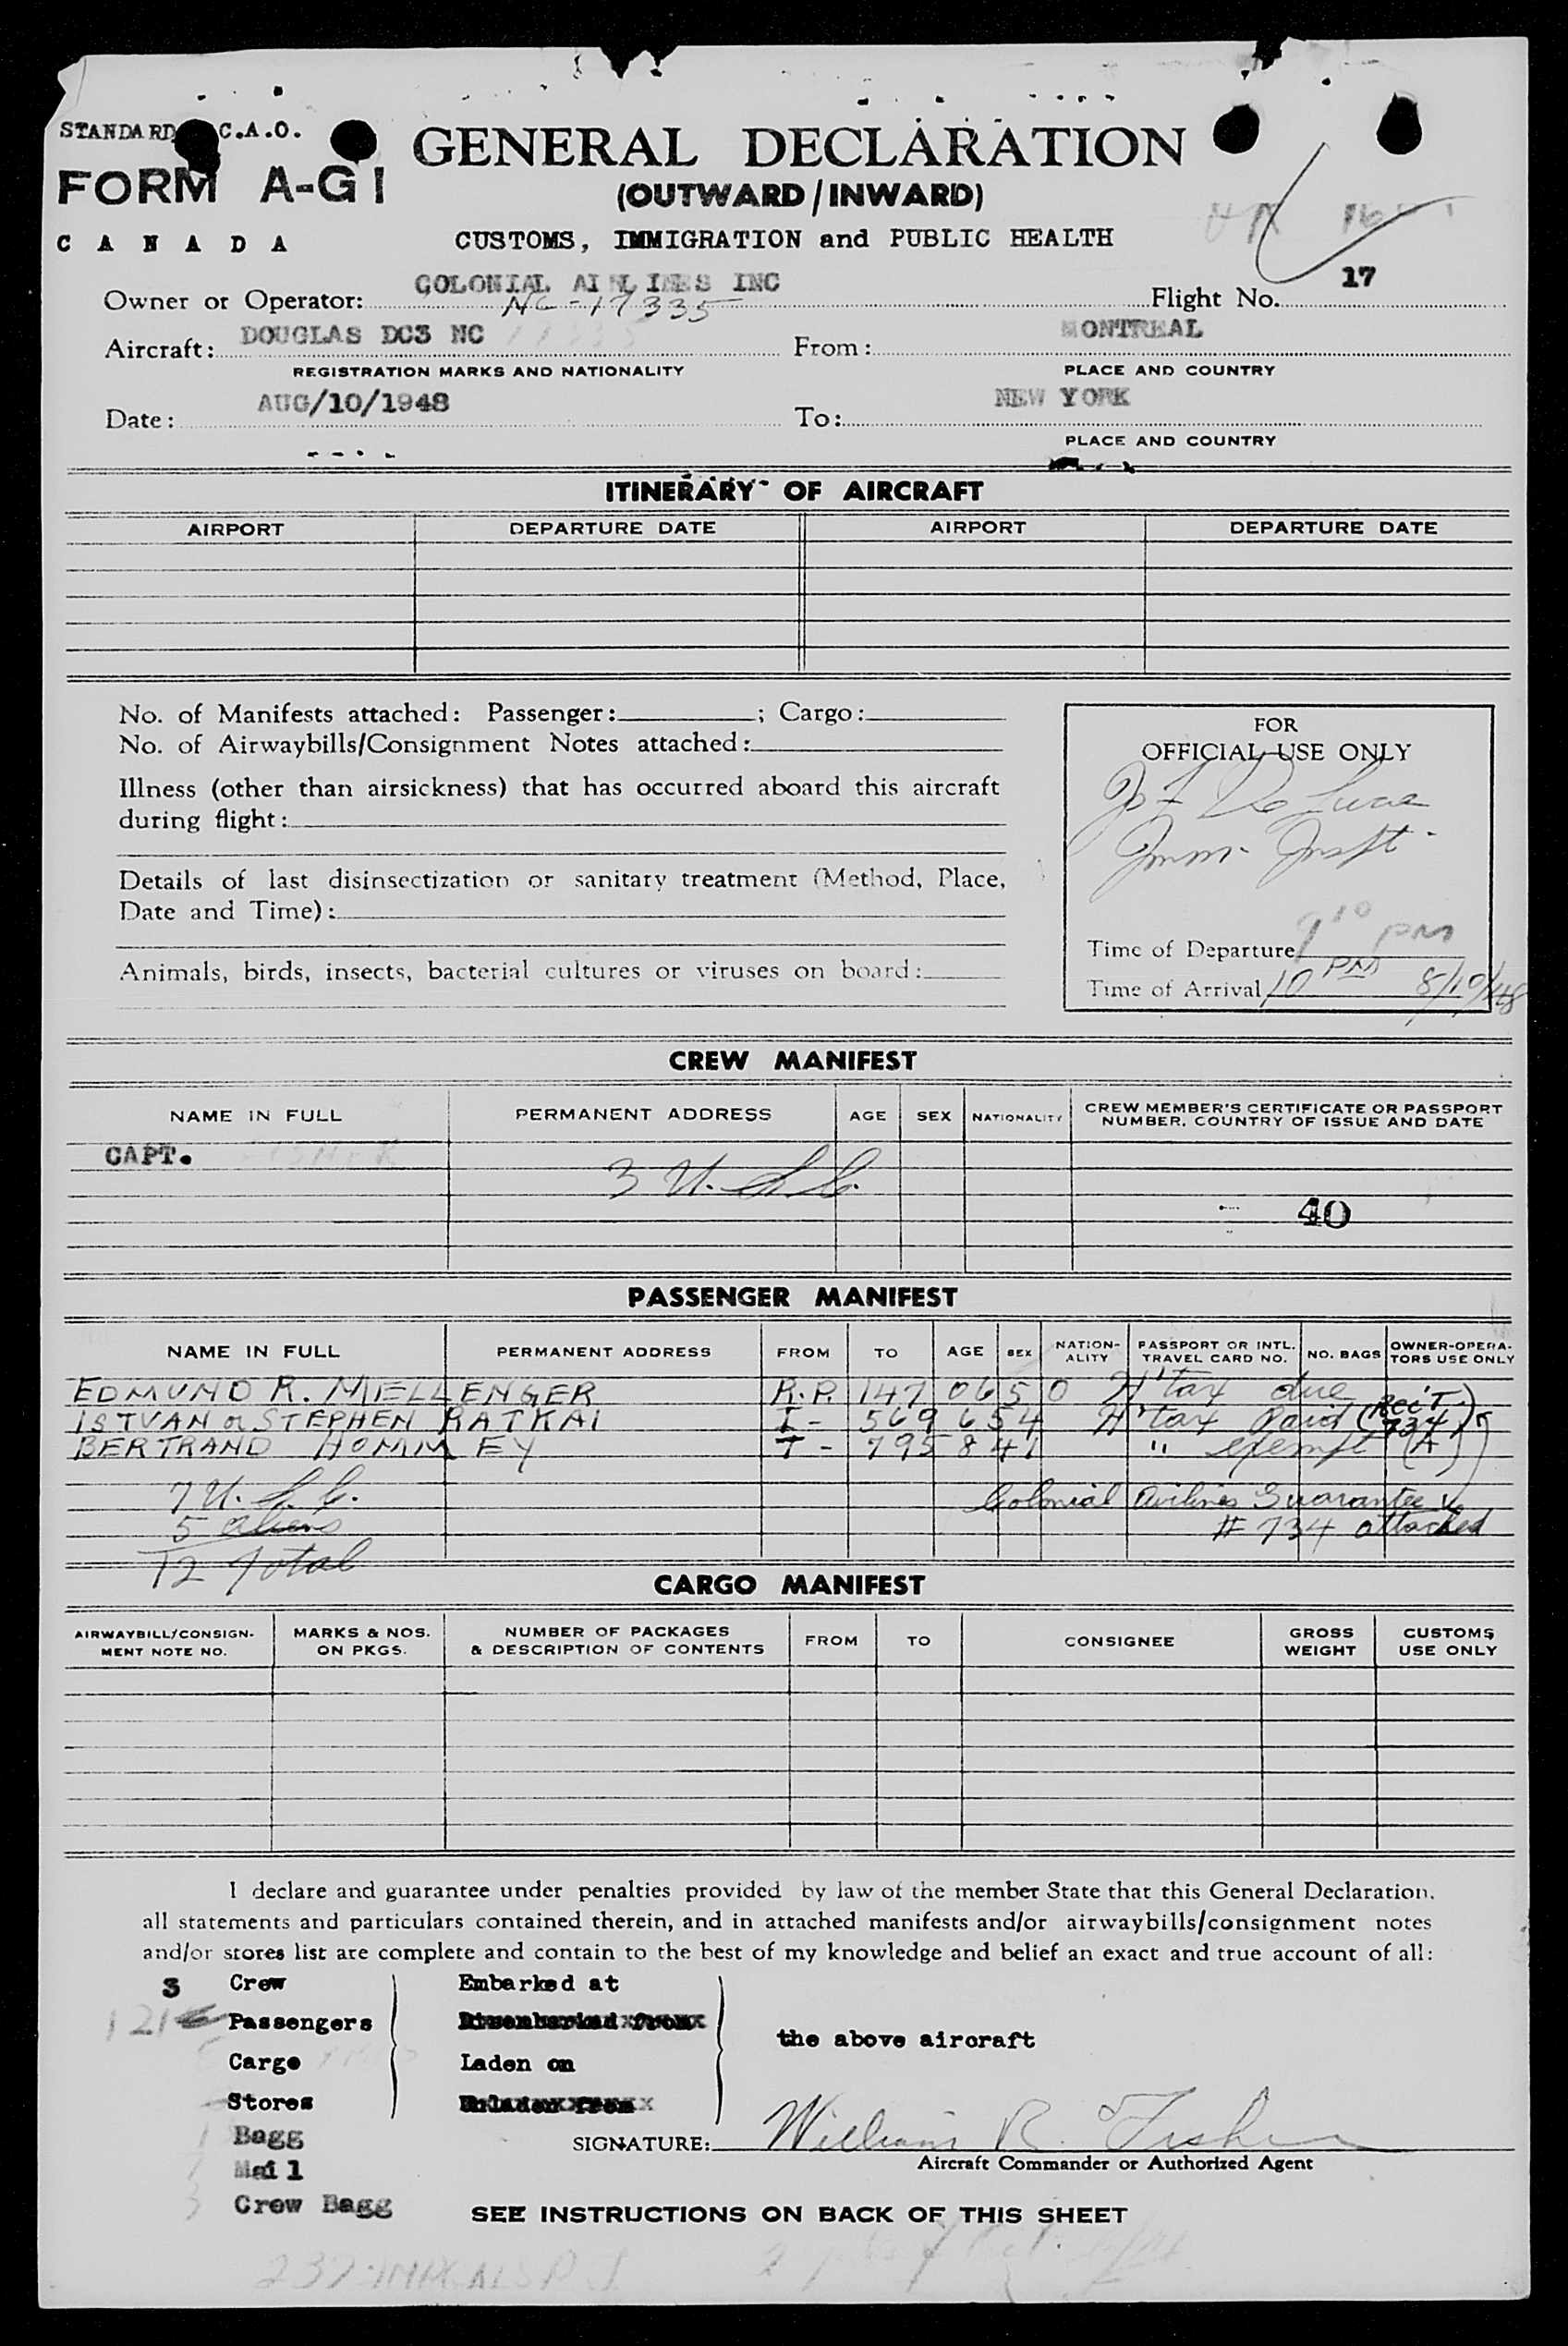 STANDARD C.A.O.
FORM A-G1
CANADA
GENERAL DECLARATION
(OUTWARD/INWARD)
CUSTOMS, IMMIGRATION and PUBLIC HEALTH
Owner or Operator: COLONIAL AIRLINES INC
NC-17335
Flight No. 17
Aircraft: DOUGLAS DC3 NC
From: MONTREAL
REGISTRATION MARKS AND NATIONALITY
PLACE AND COUNTRY
Date: AUG/10/1948
To: NEW YORK
PLACE AND COUNTRY
ITINERARY OF AIRCRAFT
AIRPORT DEPARTURE DATE AIRPORT DEPARTURE DATE
No. of Manifests attached: Passenger: ; Cargo:
No. of Airwaybills/Consignment Notes attached:
Illness (other than airsickness) that has occurred aboard this aircraft
during flight:
Details of last disinsectization or sanitary treatment (Method, Place,
Date and Time):
Animals, birds, insects, bacterial cultures or viruses on board:
FOR
OFFICIAL USE ONLY
De Luca
Imm. Inspt.
Time of Departure 9 10 PM
Time of Arrival 10 PM 8/10/48
CREW MANIFEST
NAME IN FULL PERMANENT ADDRESS AGE SEX NATIONALITY CREW MEMBER'S CERTIFICATE OR PASSPORT NUMBER, COUNTRY OF ISSUE AND DATE
CAPT.
3 U.S.C.
40
PASSENGER MANIFEST
NAME IN FULL PERMANENT ADDRESS FROM TO AGE SEX NATION-ALITY PASSPORT OR INTL. TRAVEL CARD NO. NO. BAGS OWNER-OPERA-TORS USE ONLY
EDMUND R. MELLENGER R.P. 147 0650 H'tax due
ISTVAN or STEPHEN RATKAI I- 569 654 H'tax Paid (Rec'T 734)
BERTRAND HOMMEY T- 795 841 " exempt (A)
7 U.S.C. Colonial Airlines Guarantee
5 aliens # 734 attached
12 Total
CARGO MANIFEST
AIRWAYBILL/CONSIGN-MENT NOTE NO. MARKS & NOS. ON PKGS. NUMBER OF PACKAGES & DESCRIPTION OF CONTENTS FROM TO CONSIGNEE GROSS WEIGHT CUSTOMS USE ONLY
I declare and guarantee under penalties provided by law of the member State that this General Declaration,
all statements and particulars contained therein, and in attached manifests and/or airwaybills/consignment notes
and/or stores list are complete and contain to the best of my knowledge and belief an exact and true account of all:
3 Crew Embarked at
12 Passengers Disembarked from
the above aircraft
Cargo Laden on
Stores Unladen from
Bagg
SIGNATURE: William R. Fisher
Mail
Aircraft Commander or Authorized Agent
3 Crew Bagg
SEE INSTRUCTIONS ON BACK OF THIS SHEET